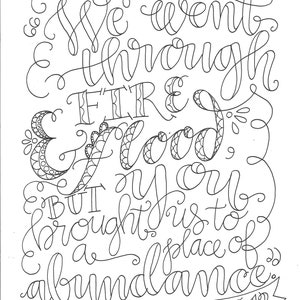 "We went
through
FIRE
& flood,
BUT you
brought us to
a place of
abundance."